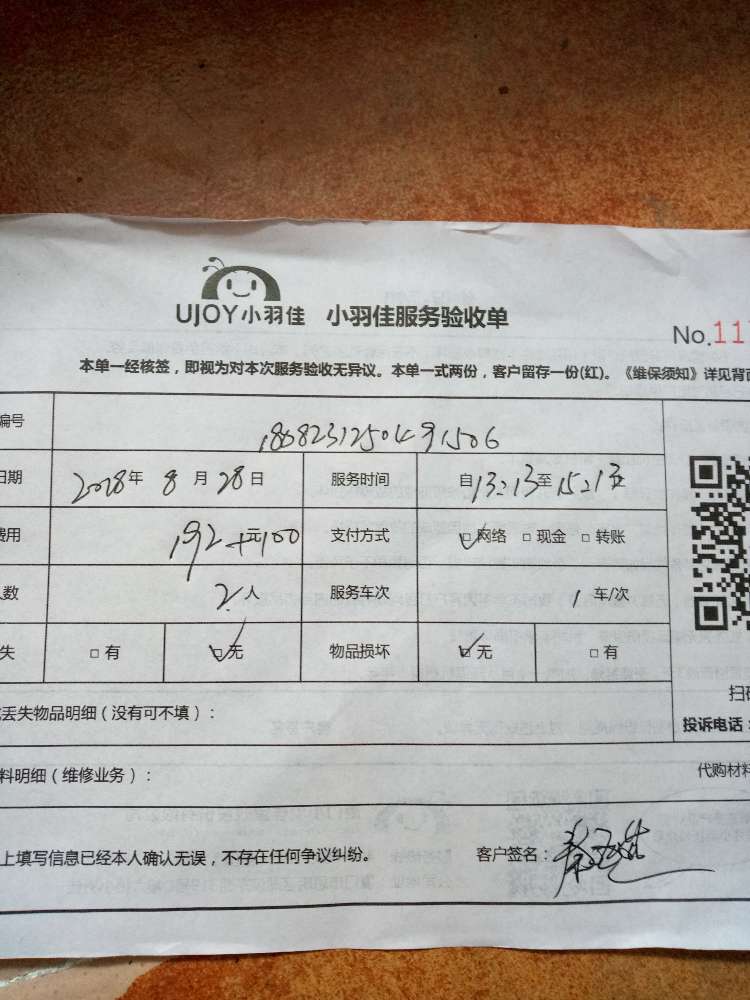 UJOY小羽佳 小羽佳服务验收单
No.11
本单一经核签，即视为对本次服务验收无异议。本单一式两份，客户留存一份(红)。《维保须知》详见背面
编号
日期 2018年 8月 28日 服务时间 自13:13至15:13
费用 192元+100 支付方式 □网络 □现金 □转账
人数 2人 服务车次 1车/次
失 □有 □无 物品损坏 □无 □有
扫码
丢失物品明细（没有可不填）：
投诉电话：
料明细（维修业务）：
代购材料
上填写信息已经本人确认无误，不存在任何争议纠纷。 客户签名：